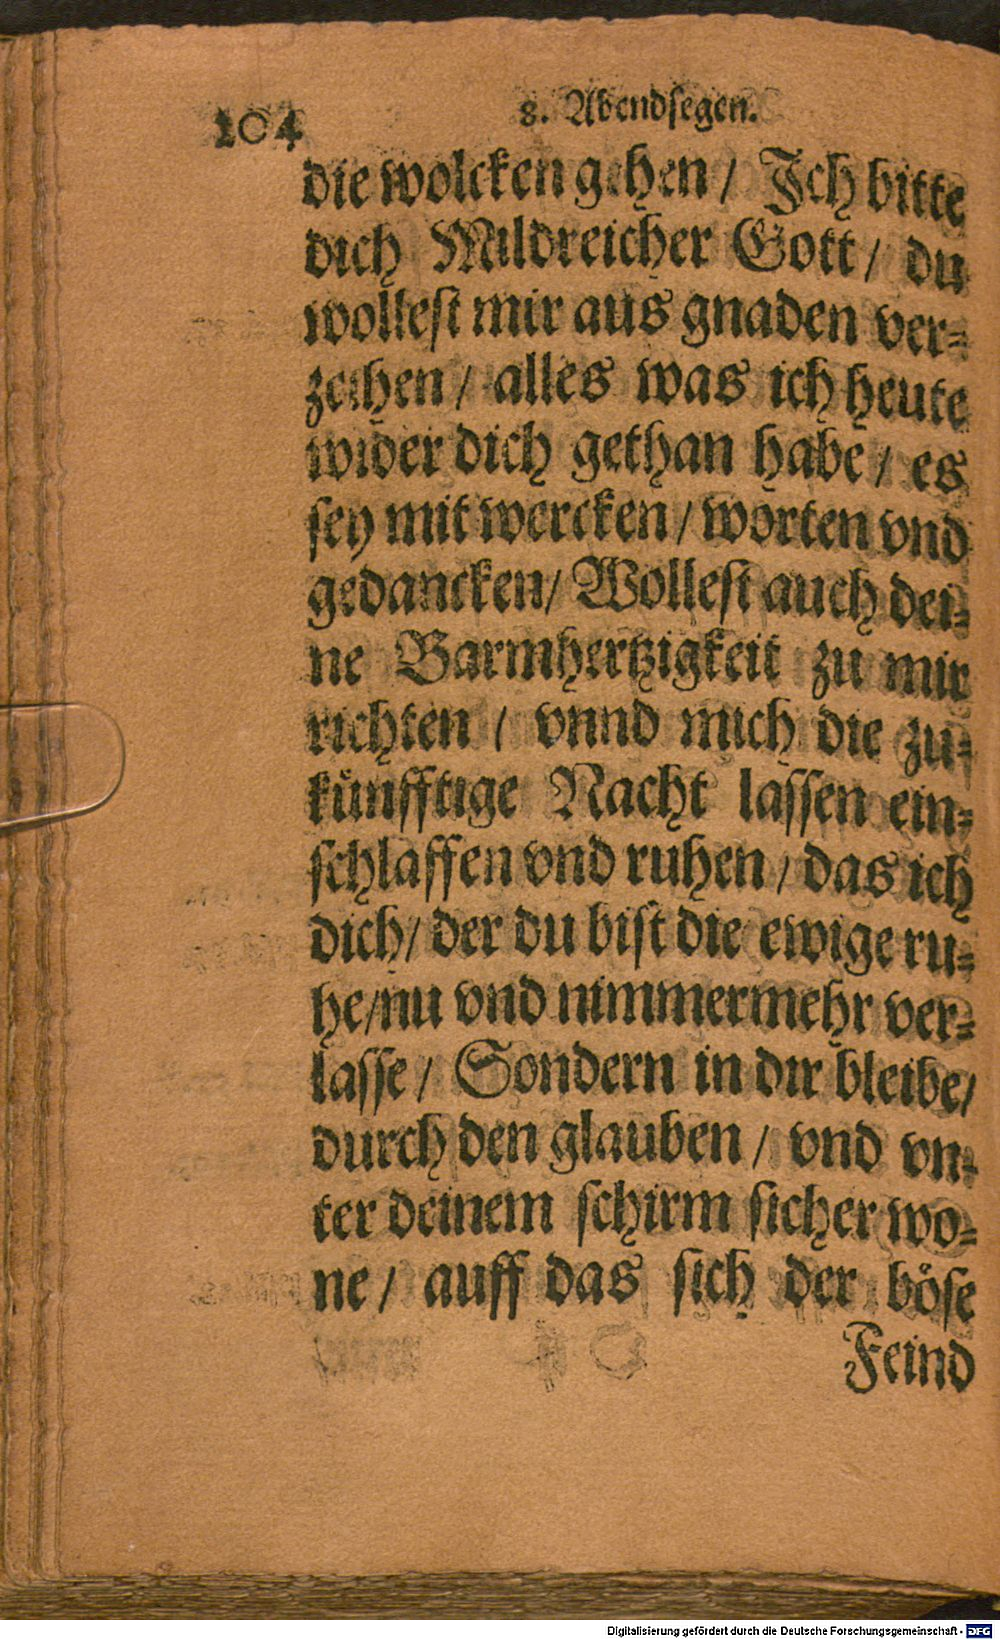 104
8. Abendsegen.
die wolcken gehen / Ich bitte
dich Mildreicher Gott / du
wollest mir aus gnaden ver-
zeihen / alles was ich heute
wider dich gethan habe / es
sey mit wercken / worten vnd
gedancken / Wollest auch dei-
ne Barmhertzigkeit zu mir
richten / vnnd mich die zu-
künfftige Nacht lassen ein-
schlaffen vnd ruhen / das ich
dich / der du bist die ewige ru-
he / nu vnd nimmermehr ver-
lasse / Sondern in dir bleibe /
durch den glauben / vnd vn-
ter deinem schirm sicher wo-
ne / auff das sich der böse
Feind
Digitalisierung gefördert durch die Deutsche Forschungsgemeinschaft - DFG